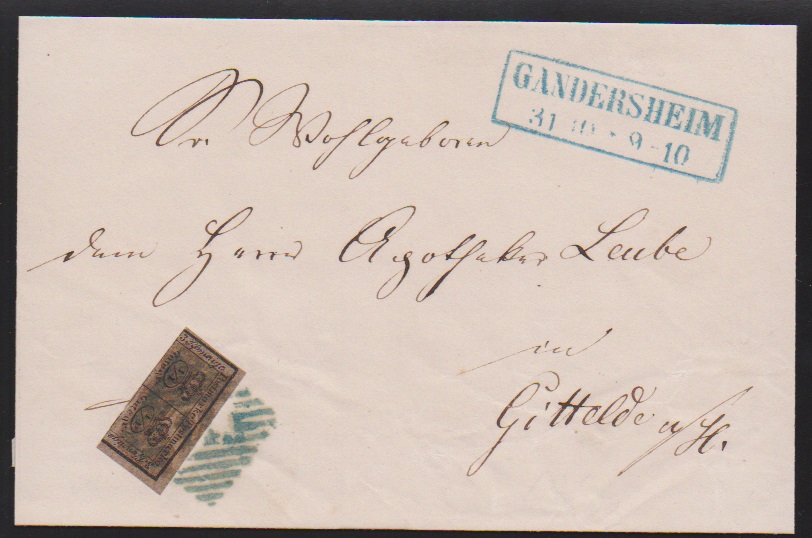 GANDERSHEIM
31 10 * 9-10
Sr. Wohlgeboren
dem Herrn Apotheker Leube
in
Gittelde a/H.